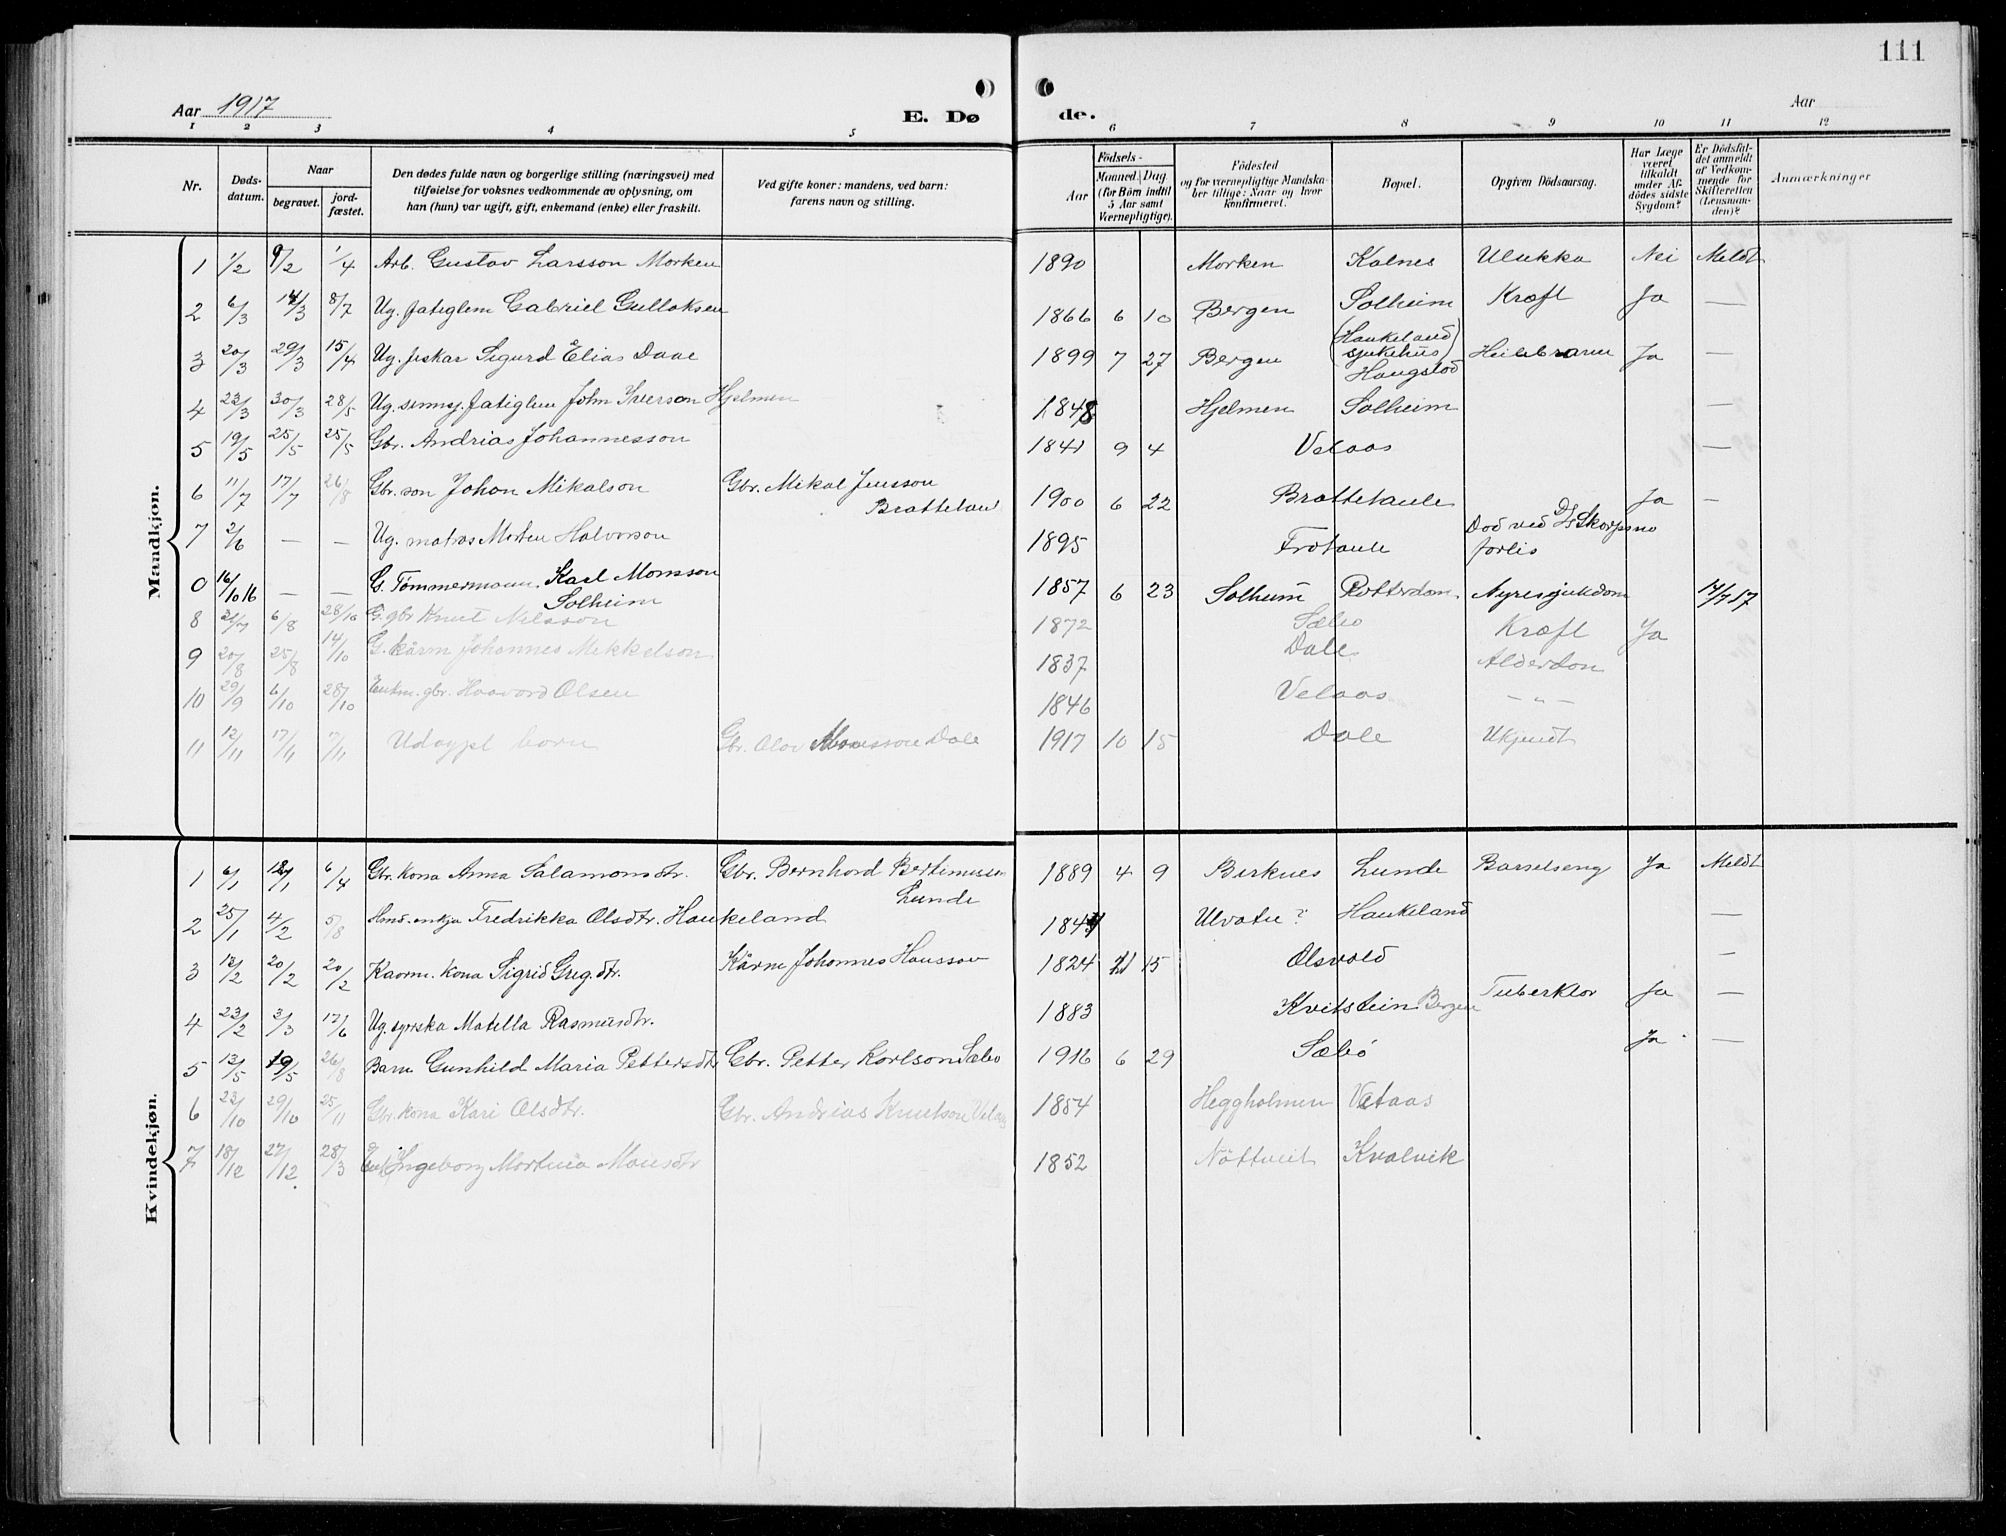 111
Aar 1917
E. Dø
de.
Aar
1 2 3 4 5 6 7 8 9 10 11 12
Nr.
Døds-
datum.
Naar
begravet.
jord-
fæstet.
Den dødes fulde navn og borgerlige stilling (næringsvei) med
tilføielse for voksnes vedkommende av oplysning, om
han (hun) var ugift, gift, enkemand (enke) eller fraskilt.
Ved gifte koner: mandens, ved barn:
farens navn og stilling.
Aar
Födsels-
Maaned. Dag
(for Børn indtil
5 Aar samt
Værnepligtige).
Födested
og for værnepligtige Mandska-
ber tillige: Naar og hvor
konfirmeret.
Bopæl.
Opgiven Dödsaarsag.
Har Læge
været
tilkaldt
under Af-
dödes sidste
Sygdom?
Er Dödsfal-
det anmeldt
af Vedkom-
mende for
Skifteretten
(Lensman-
den)?
Anmærkninger
Mandkjøn.
1 1/2 9/2 1/4 Arb. Gustav Larsson Morken 1890 Morken Kalnes Ulukka Nei Meldt
2 6/3 14/3 8/7 Ug. fatiglem Gabriel Gulloksen 1866 6 10 Bergen Solheim Kræft Ja —
3 20/3 29/3 15/4 Ug. fiskar Sigurd Elias Daae 1899 7 27 Bergen (Haukeland sjukehus) Haugstod Ja —
4 23/3 30/3 28/5 Ug. sinnsj. fatiglem John Iverson Hjelmen 1848 Hjelmen Solheim —
5 19/5 25/5 25/5 Gbr. Andrias Johannesson 1841 9 4 Velaas —
6 11/7 17/7 26/8 Gbr. son Johan Mikalson Gbr. Mikal Jensson
Bratteland 1900 6 22 Brattetaule Ja —
7 2/6 — — Ug. matros Morten Halvorson 1895 Frotaule Død ved D/S Skorpsno
forlis
0 16/10 16 — — G. Tömmermann. Karl Monsson
Solheim 1857 6 23 Solheim Rotterdam. Nyresjukdom 14/7 17
8 31/7 6/8 28/10 G. gbr Knut Nilsson 1872 Sæbo Kræft Ja
9 20/8 25/8 14/10 G. kårm Johannes Mikkelson 1837 Dale Alderdom
10 29/9 6/10 28/10 Enkm. gbr. Haavard Olsen 1846 Velaas — " —
11 12/11 17/11 17/11 Udøypt born Gbr. Olov Monsson Dale 1917 10 15 Dale Ukjendt
Kvindekjøn.
1 6/1 12/1 6/4 Gbr. kona Anna Salamonsdtr. Gbr. Bernhard Bertinusson
Lunde 1889 4 9 Birknes Lunde Barselseng Ja Meldt
2 25/1 4/2 5/8 Hmd. enkja Fredrikka Olsdtr. Haukeland Ulvatn? Haukeland —
3 12/2 20/2 20/2 Kaarm. kona Sigrid Greg.dtr. Kårm Johannes Hansson 1824 15 Olsvold —
4 23/2 3/3 17/6 Ug. syerska Matella Rasmusdtr. 1883 Kvitstein Bergen Tuberklor Ja —
5 13/5 19/5 26/8 Barn Gunhild Maria Pettersdtr Gbr. Petter Karlson Sæbo 1916 6 29 Sæbö Ja —
6 23/10 29/10 25/11 Gbr. kona Kari Olsdtr. Gbr. Andrias Knutson Velaas 1854 Heggholmen Vetaas
7 18/12 27/12 28/3 Enk. Ingeborg Martina Monsdtr 1852 Nöttveit Kvalvik